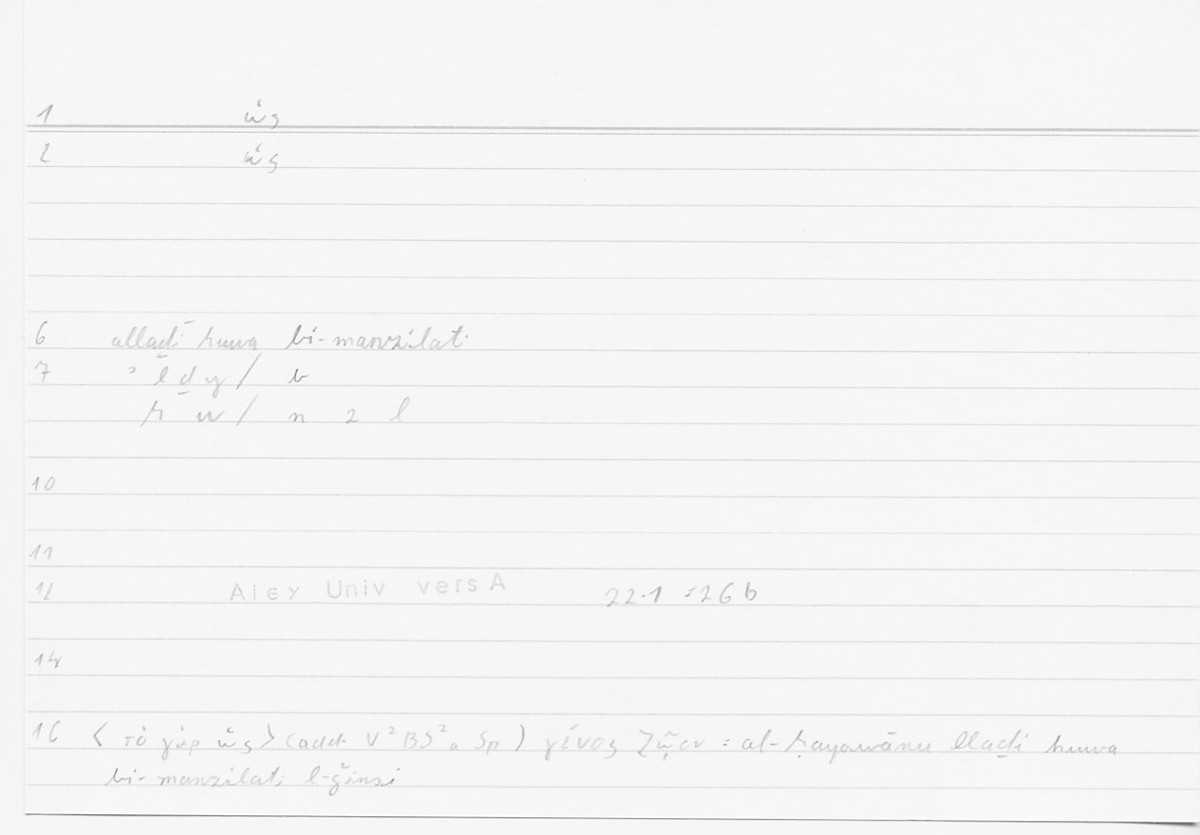 1 ὡς
2 ὡς
6 allaḏī huwa bi-manzilati
7 ʾ l ḏ y / b
h w / n z l
10
11
12 Alex Univ vers A 22.1 = 26 b
14
16 < τὸ γὰρ ὡς > (add. V² B S²ₐ Sp ) γένος ζῷον : al-ḥayawānu llaḏi huwa
bi-manzilati l-ǧinsi